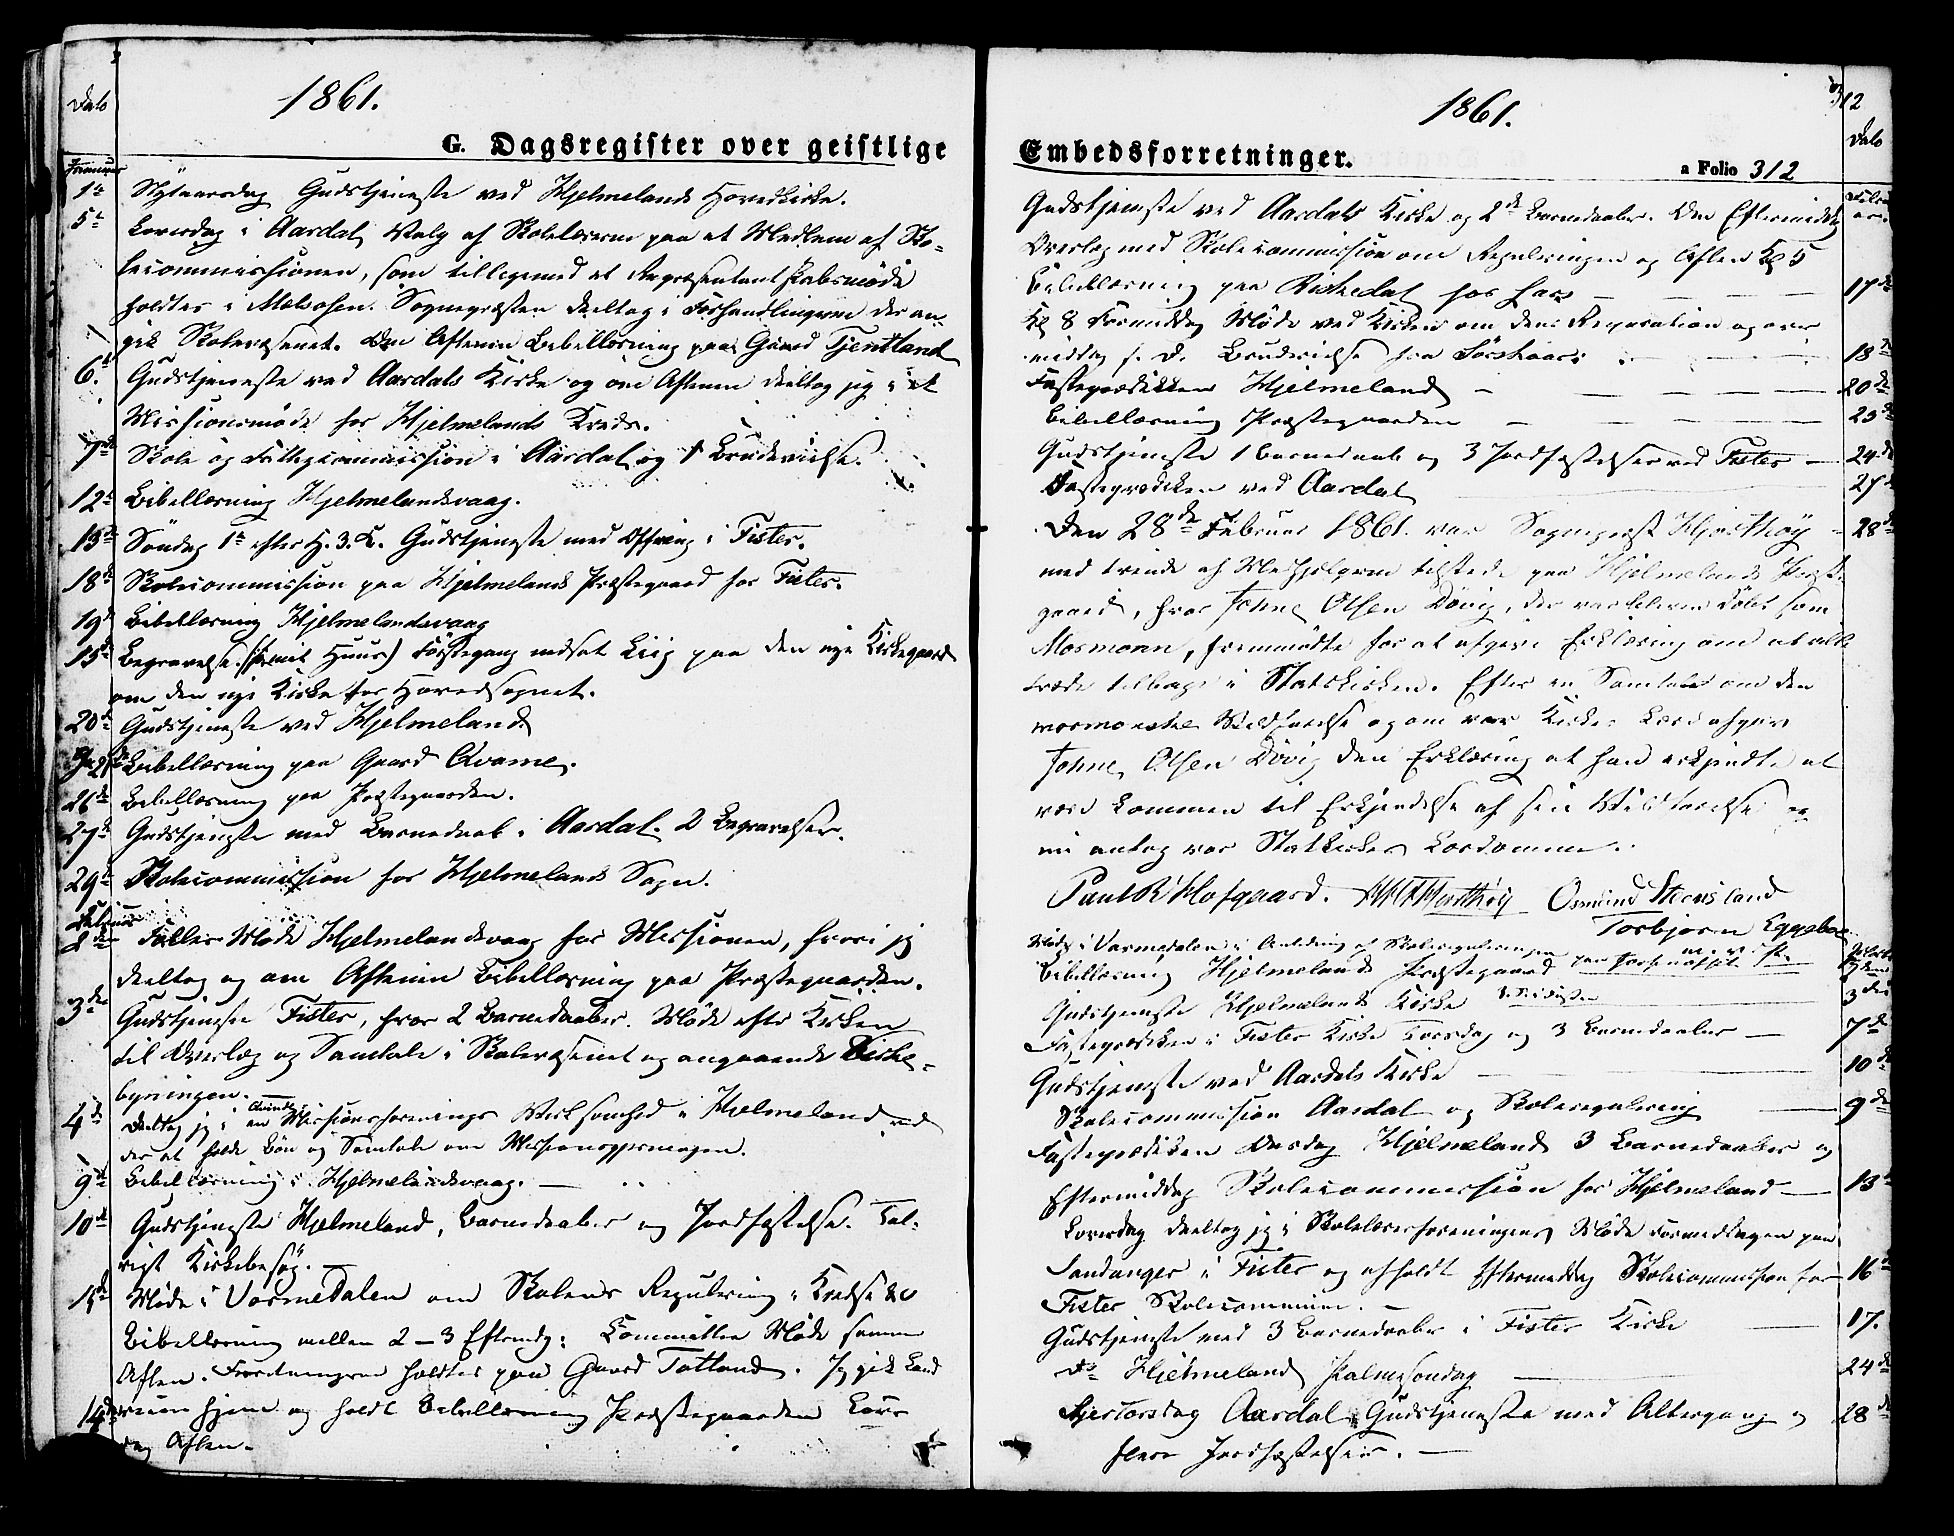 Dato
1861.
G. Dagsregister over geistlige
Januar
1te Nytaarsdag Gudstjeneste ved Hjelmelands Hovedkirke.
5te Løverdag i Aardal Valg af Skolelærerne paa et Medlem af Sko-
lecommissionen, som tilligemed et Repræsentantskabsmøde
holdtes i Malaosen. Sognepræsten deeltog i Forhandlingerne der an-
gik Skolevæsenet. Om Aftenen Bibellæsning paa Gaard Tjentland
6te Gudstjeneste ved Aardals Kirke og om Aftenen deeltog jeg i et
Missionsmøde for Hjelmelands Kreds.
7de Skole og Fattigcommission i Aardal og 1 Brudevielse.
12te Bibellæsning Hjelmelandsvaag.
13de Søndag 1te efter H. 3. K. Gudstjeneste med Offring i Fister.
18de Skolecommission paa Hjelmelands Præstegaard for Fister.
19de Bibellæsning Hjelmelandsvaag
15de Begravelse Huus) Førstegang nedsat Liig paa den nye Kirkegaard
om den nye Kirke for Hovedsognet.
20de Gudstjeneste ved Hjelmeland
Bibellæsning paa Gaard Qvame.
26de Bibellæsning paa Præstegaarden.
27de Gudstjeneste med Barnedaab i Aardal. 2 Begravelser.
29de Skolecommission for Hjelmelands Sogn.
Februar
2den Fælles Møde Hjelmelandsvaag for Missionen, hvori jeg
deeltog og om Aftenen Bibellæsning paa Præstegaarden.
3die Gudstjeneste Fister, hvor 2 Barnedaaber. Møde efter Kirken
til Overlæg og Samtale i Skolevæsenet og angaaende Kirke-
bygningen.
Qvinde
4de Deeltog jeg i en Missionsforenings Virksomhed i Hjelmeland ved
der at holde Bøn og Samtale om Missionsgjerningen.
9de Bibellæsning i Hjelmelandsvaag. —
10de Gudstjeneste Hjelmeland, Barnedaaber og Jordfæstelse. Tal-
rigt Kirkebesøg. —
15de Møde i Vormedalen om Skolens Regulering i Kredse &c
Bibellæsning mellem 2 – 3 Eftermdg: Committee Møde samme
Aften. Forretningerne holdtes paa Gaard Tøtland. Jeg gik Land
14de veien hjem og holdt Bibellæsning Præstegaarden Løver
dag Aften.
312
1861.
Dato
Embedsforretninger.
a Folio 312
Februar
Gudstjeneste ved Aardals Kirke og 2de Barnedaaber. Om Eftermiddag
Overlæg med Skolecommission om Reguleringen og Aften Kl 5
Bibellæsning paa Riskedal hos Lars — — — — 17de
Kl 8 Formiddag Møde ved Kirken om dens Reparation og over
middag s. D. Brudevielse fra — — 18de
Fasteprædiken Hjelmeland — — — — 20de
Bibellæsning Præstegaarden — — — — 23de
Gudstjeneste 1 Barnedaab og 3 Jordfæstelser ved Fister — 24de
Fasteprædiken ved Aardal 27de
Den 28de Februar 1861. var Sognepræst Hjorthøy 28de
med tvende af Medhjelperne tilstede paa Hjelmelands Præste-
gaard, hvor Johne Olsen Døvig, der var bleven døbt som
Mormonn, fremmødte for at afgive Erklæring om at ville
træde tilbage i Statskirken. Efter en Samtale om den
mormonske Vildfarelse og om vor Kirkes Lære afgav
Johne Olsen Døvig den Erklæring at han erkjendte at
være kommen til Erkjendelse af sin Vildfarelse og
nu antog vor Statskirkes Lærdomme.
Paul R Hofgaard. Hjorthøy Osmund Steensland
Torbjørn Eggebøe
m. p. P.
Møde i Vormedalen i Anledning af Skolereguleringen
Bibellæsning Hjelmelands Præstegaard Marts 2den
Gudstjeneste Hjelmelands Kirke 3die
Fasteprædiken i Fister Kirke Torsdag og 3 Barnedaaber — 7de
Gudstjeneste ved Aardals Kirke — 10de
Skolecommission Aardal og Skoleregulering — 9de
Fasteprædiken Onsdag Hjelmeland 3 Barnedaaber og
Eftermiddag Skolecommission for Hjelmeland — 13de
Løverdag deeltog jeg i Skolelærerforeningens Møde Formiddagen paa
Sandanger i Fister og afholdt Eftermiddag Skolecommission for 16de
Fister Skolecommune. —
Gudstjeneste med 3 Barnedaaber i Fister Kirke — 17.
Do Hjelmeland Palmesøndag — 24de
Skjertorsdag Aardal Gudstjeneste med Altergang og 28de
flere Jordfæstelser. —